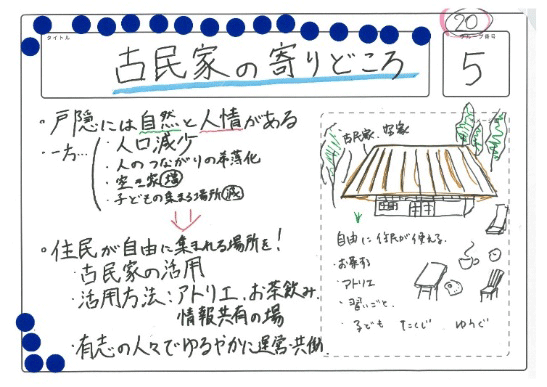 タイトル
古民家の寄りどころ
20
グループ番号
5
・戸隠には自然と人情がある
・一方…
・人口減少
・人のつながりの希薄化
・空き家 増
・子どもの集まる場所 減
・住民が自由に集まれる場所を!
・古民家の活用
・活用方法:アトリエ、お茶飲み、
情報共有の場
・有志の人々でゆるやかに運営・共働
古民家、空家
自由に住民が使える。
・アトリエ
・習いごと、
・子ども